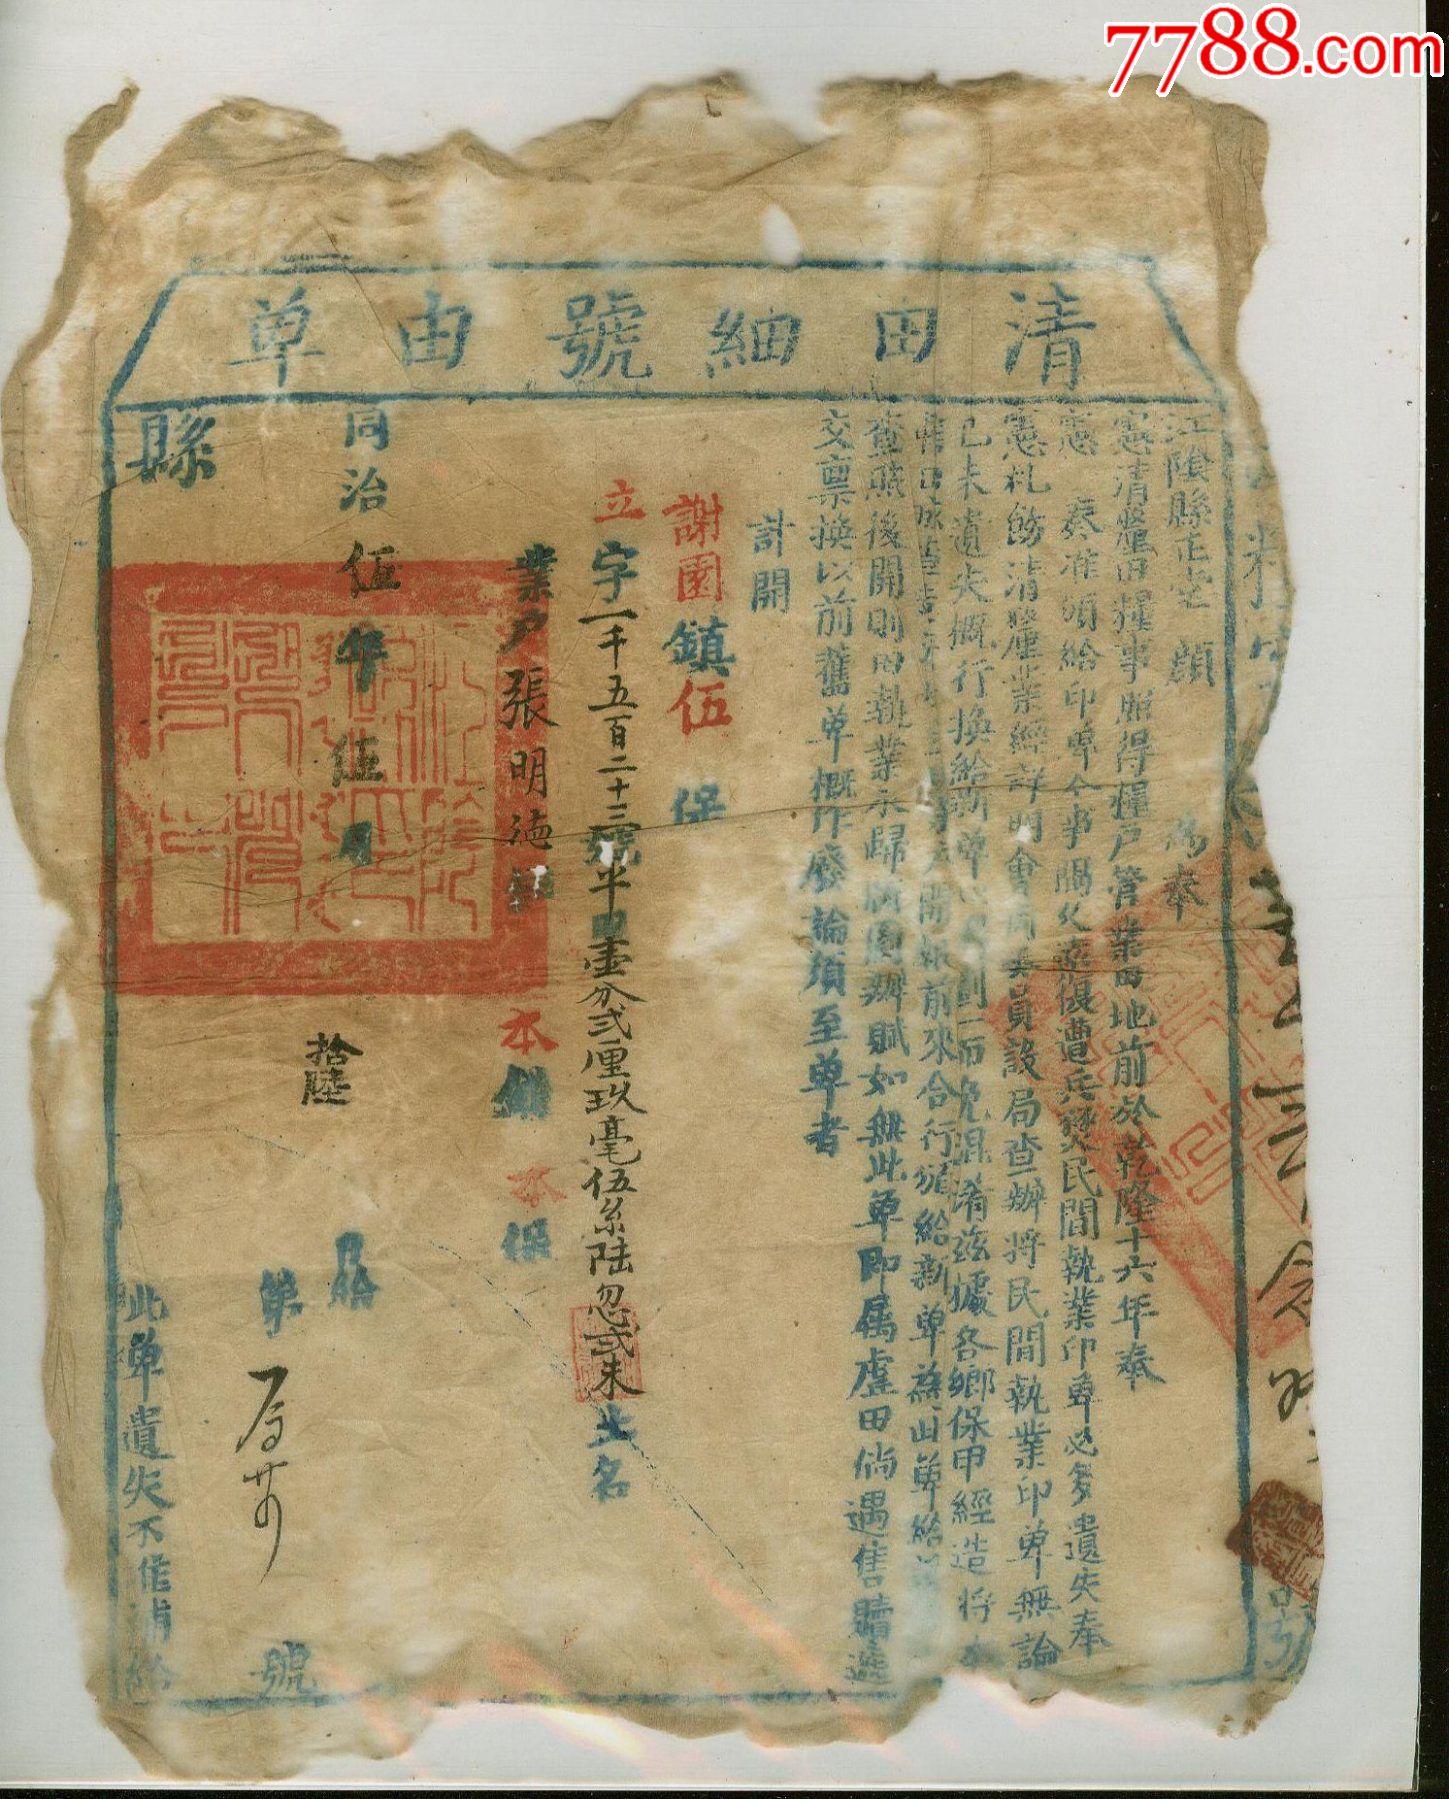 7788.com
清田細號由單
江陰縣正堂 顏 為奉
憲清釐田糧事照得糧戶管業田地前於乾隆十六年奉
憲 奏准頒給印單今事隔久遠復遭兵燹民間執業印單必多遺失奉
憲札飭清釐業經詳明會同委員設局查辦將民間執業印單無論
已未遺失概行換給新單以 劃一而免混淆茲據各鄉保甲經造將
開報前來合行頒給新單為此單給
查照後開則田執業永歸版圖辦賦如無此單即属虛田倘遇售贖
交稟換以前舊單概作廢論須至單者
計開
謝園鎮伍 保
立字一千五百二十三號平田壹分弍厘玖毫伍糸陆忽弍末 名
業户張明德 本鎮本保
同治伍年伍月 拾陸
第 號
縣
此單遺失不准補給
號